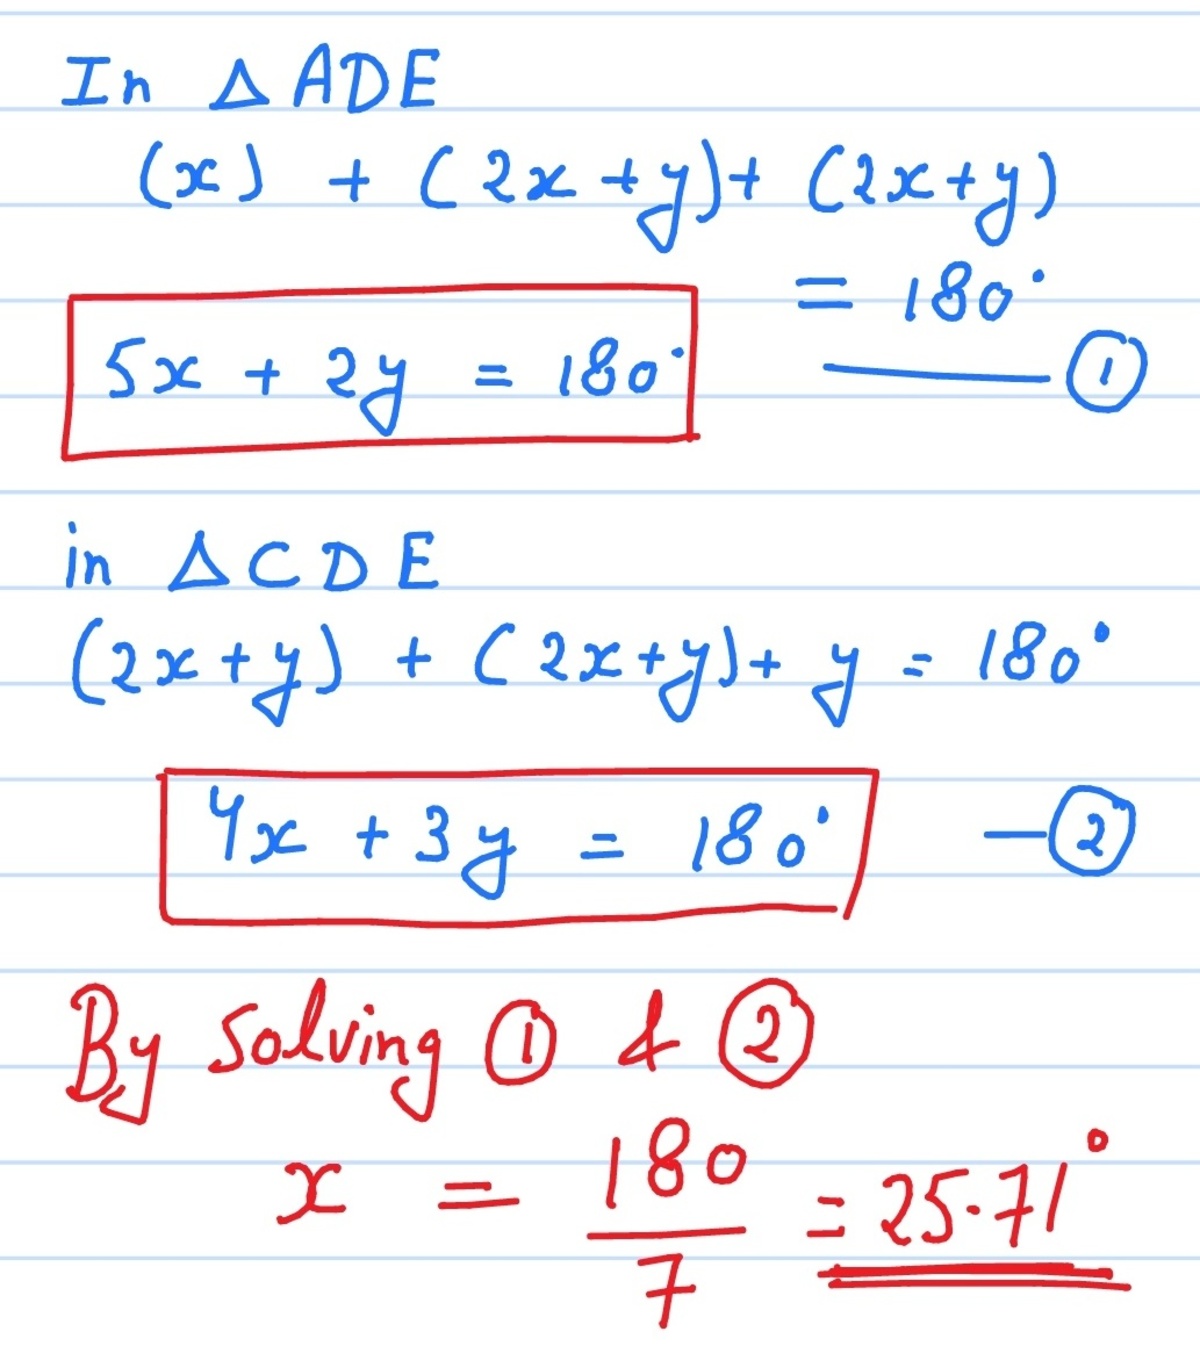 In △ ADE
(x) + (2x+y)+ (2x+y)
= 180°
5x + 2y = 180° —— ①
in △ CDE
(2x+y) + (2x+y)+ y = 180°
4x + 3y = 180° — ②
By Solving ① & ②
x = 180/7 = 25.71°